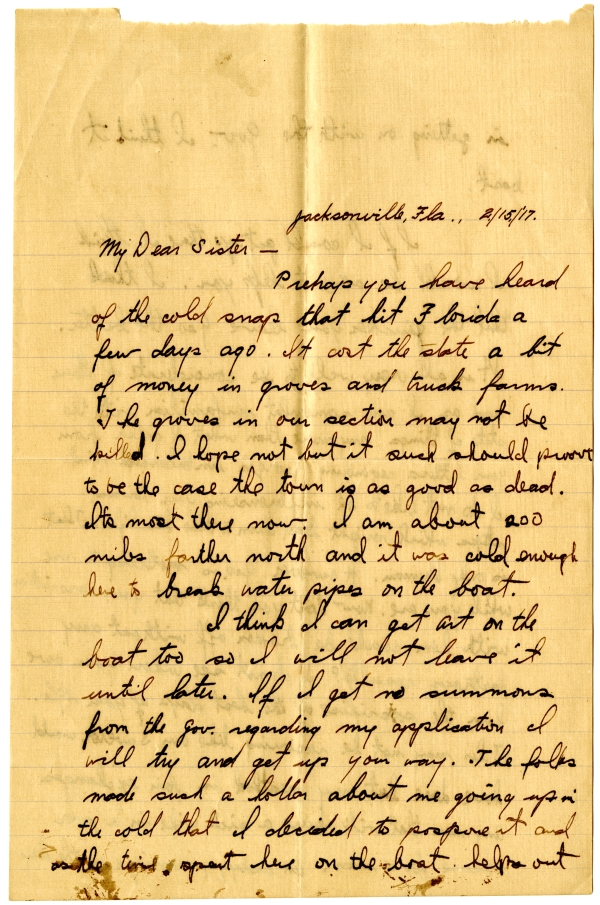 Jacksonville, Fla., 2/15/17.
My Dear Sister —
Prehaps you have heard
of the cold snap that hit Florida a
few days ago. It cost the state a bit
of money in groves and truck farms.
The groves in our section may not be
killed. I hope not but it such should proove
to be the case the town is as good as dead.
Its most there now. I am about 200
miles farther north and it was cold enough
here to break water pipes on the boat.
I think I can get art on the
boat too so I will not leave it
until later. If I get no summons
from the Gov. regarding my application I
will try and get up your way. The folks
made such a holler about me going up in
the cold that I decided to pospone it and
as the time spent here on the boat helps out